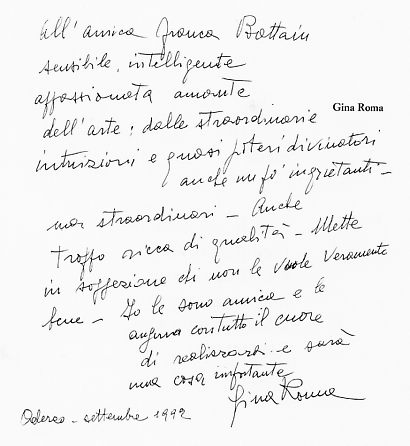 all'amica Franca Battain
sensibile, intelligente
appassionata amante
dell'arte; dalle straordinarie
Gina Roma
intuizioni e quasi poteri divinatori
anche un po' inquietanti -
ma straordinari - Anche
troppo ricca di qualità - Mette
in soggezione chi non le vuole veramente
bene - Io le sono amica e le
auguro con tutto il cuore
di realizzarsi e sarà
una cosa importante
Gina Roma
Oderzo - settembre 1992